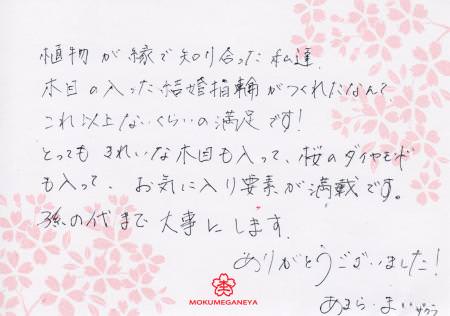 植物が縁で知り合った私達、
木目の入った結婚指輪がつくれたなんて
これ以上ないくらいの満足です!
とっても きれいな木目も入って、桜のダイヤモンド
も入って、お気に入り要素が満載です。
孫の代まで大事にします。
ありがとうございました!
MOKUMEGANEYA